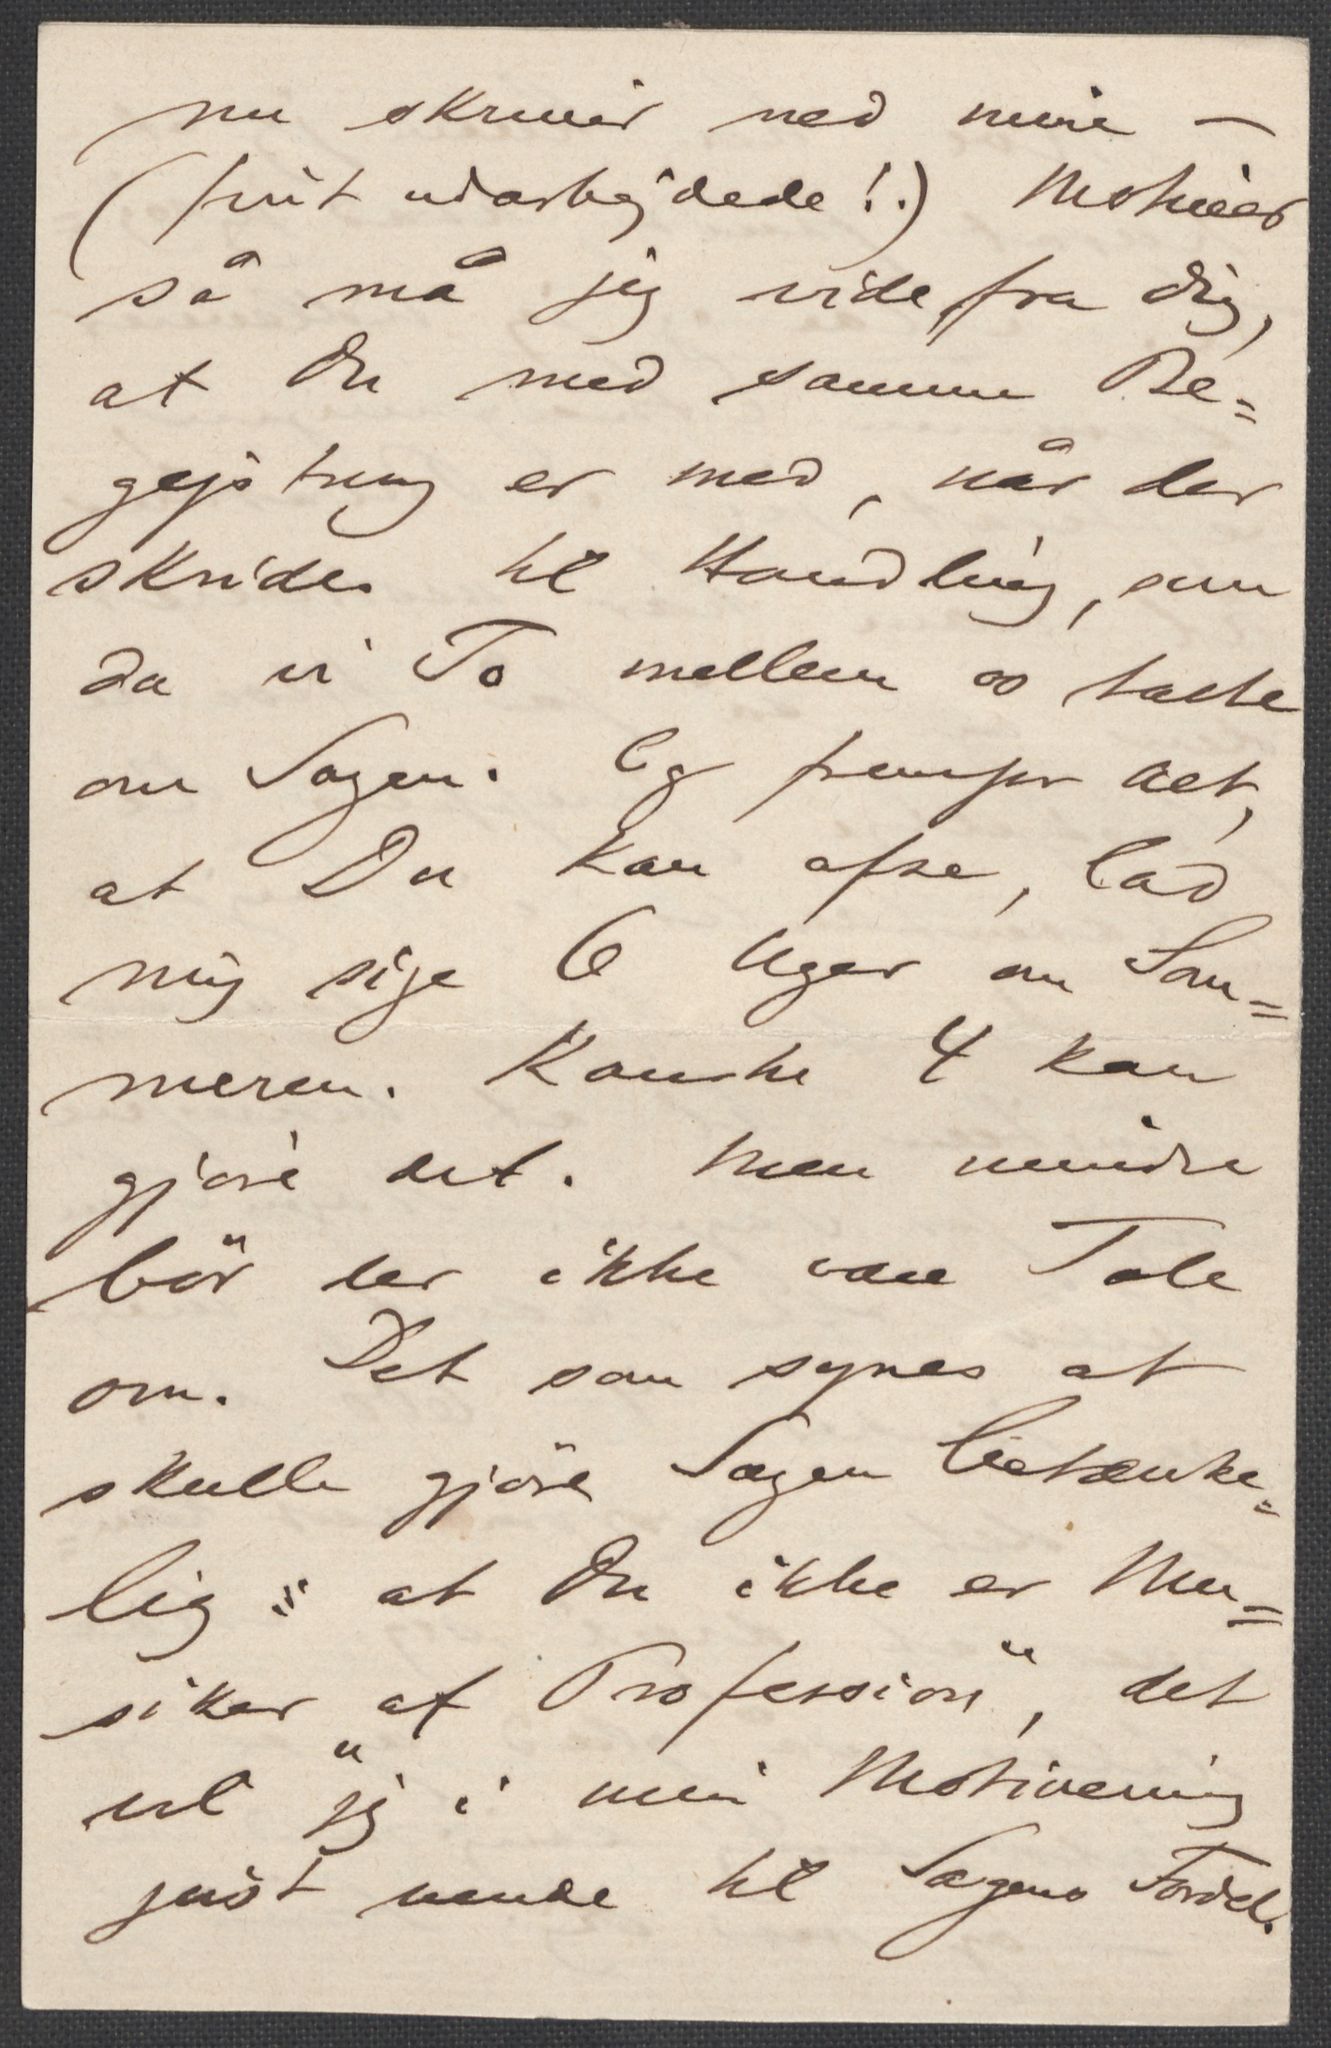 nu skriver ned mine —
(fint udarbejdede!.) Motiver
så må jeg vide fra Dig,
at Du med samme Be=
gejstring er med, når der
skrides til Handling, som
da vi To mellem os talte
om Sagen. Og fremfor Alt,
at Du kan afse, lad
mig sige 6 Uger om Som=
meren. Kanske 4 kan
gjøre det. Men mindre
bör der ikke være Tale
om. Det som synes at
skulle gjöre Sagen betænke=
lig: "at Du ikke er Mu=
siker af Profession", det
vil jeg i min Motivering
just vende til Sagens Fordel.